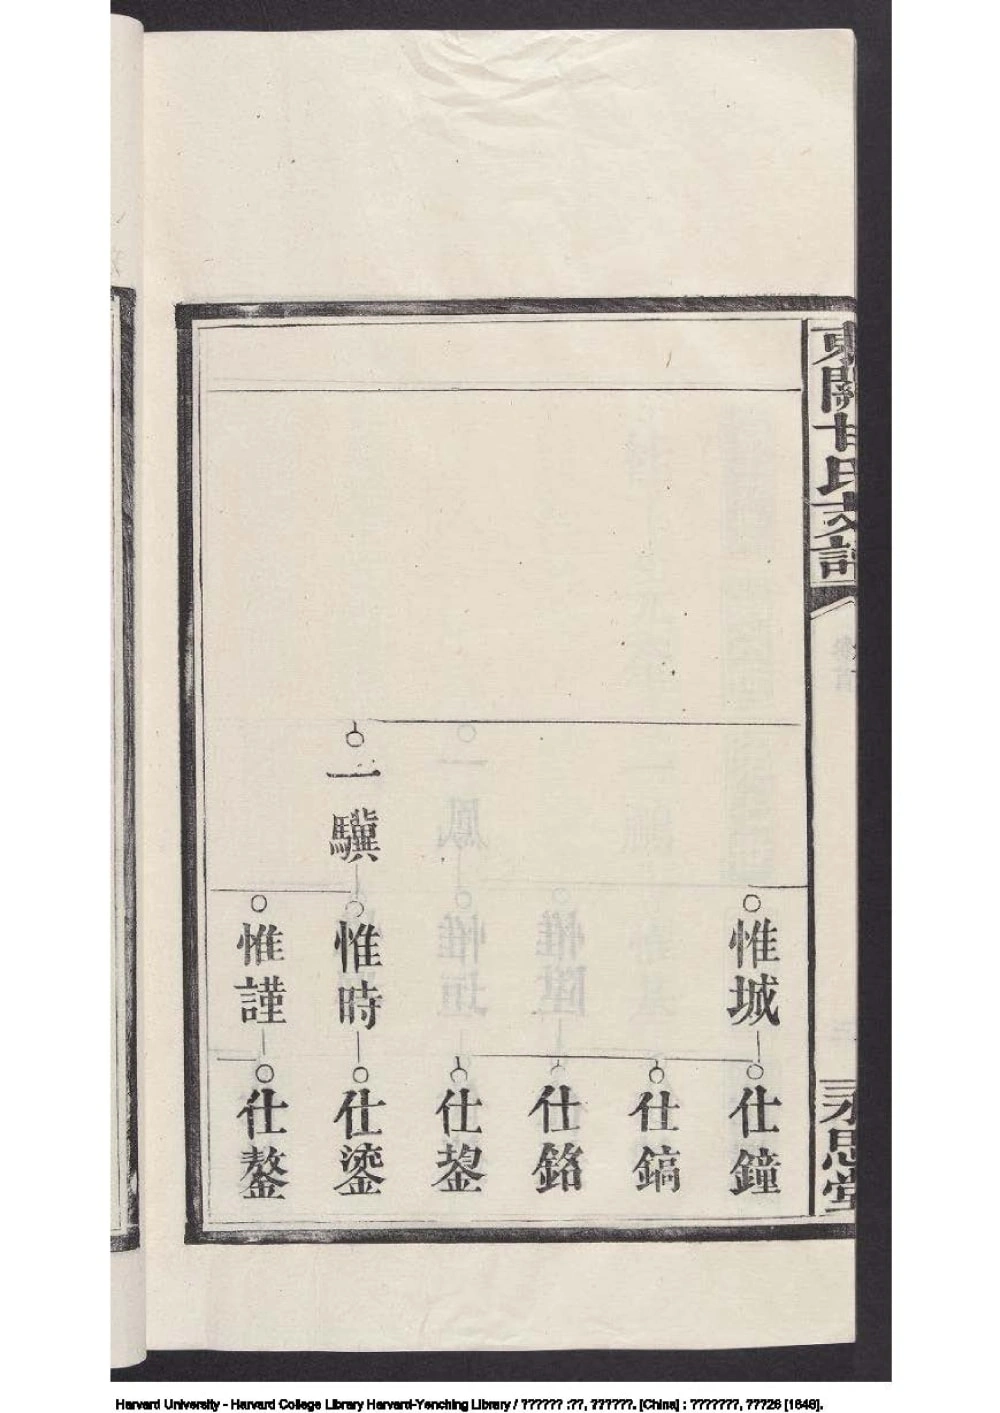 東關甘氏支譜
永思堂
惟城
仕鐘
仕鎬
仕銘
仕鋆
一驥
惟時
仕鎏
惟謹
仕鏊
Harvard University - Harvard College Library Harvard-Yenching Library / ?????? :??, ??????. [China] : ???????, ???26 [1848].